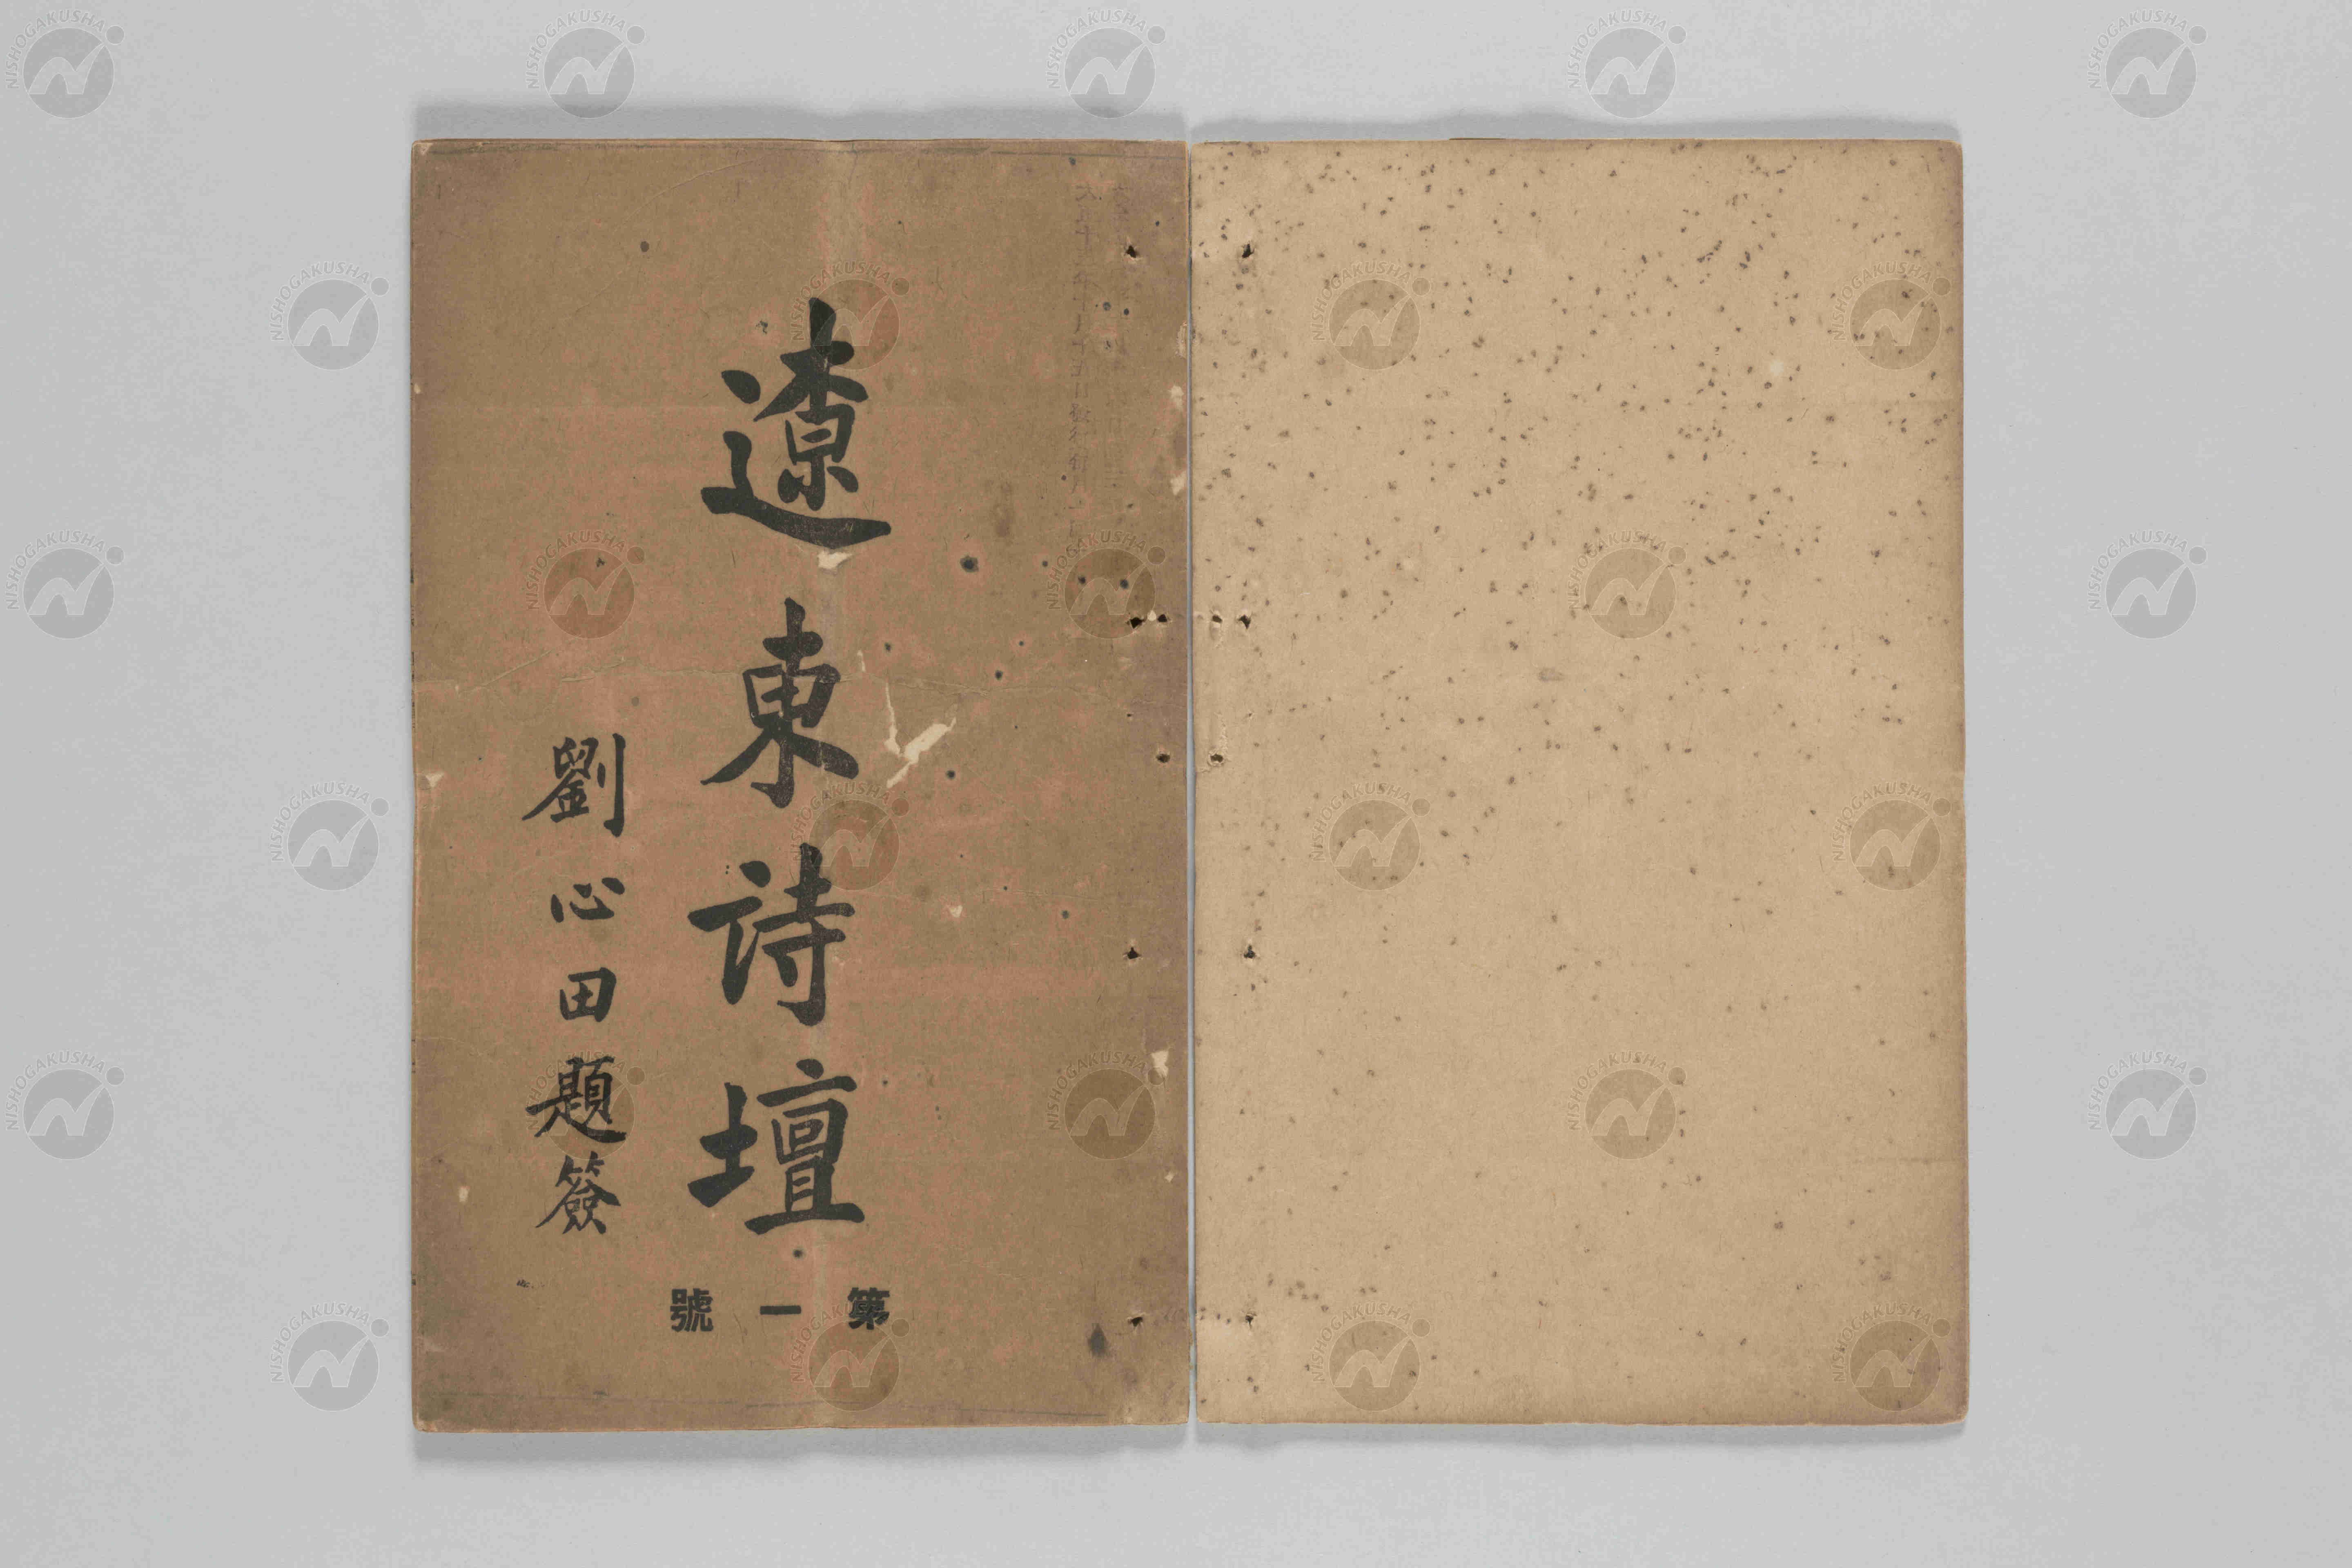 遼東詩壇
劉心田題簽
第一號
NISHOGAKUSHA